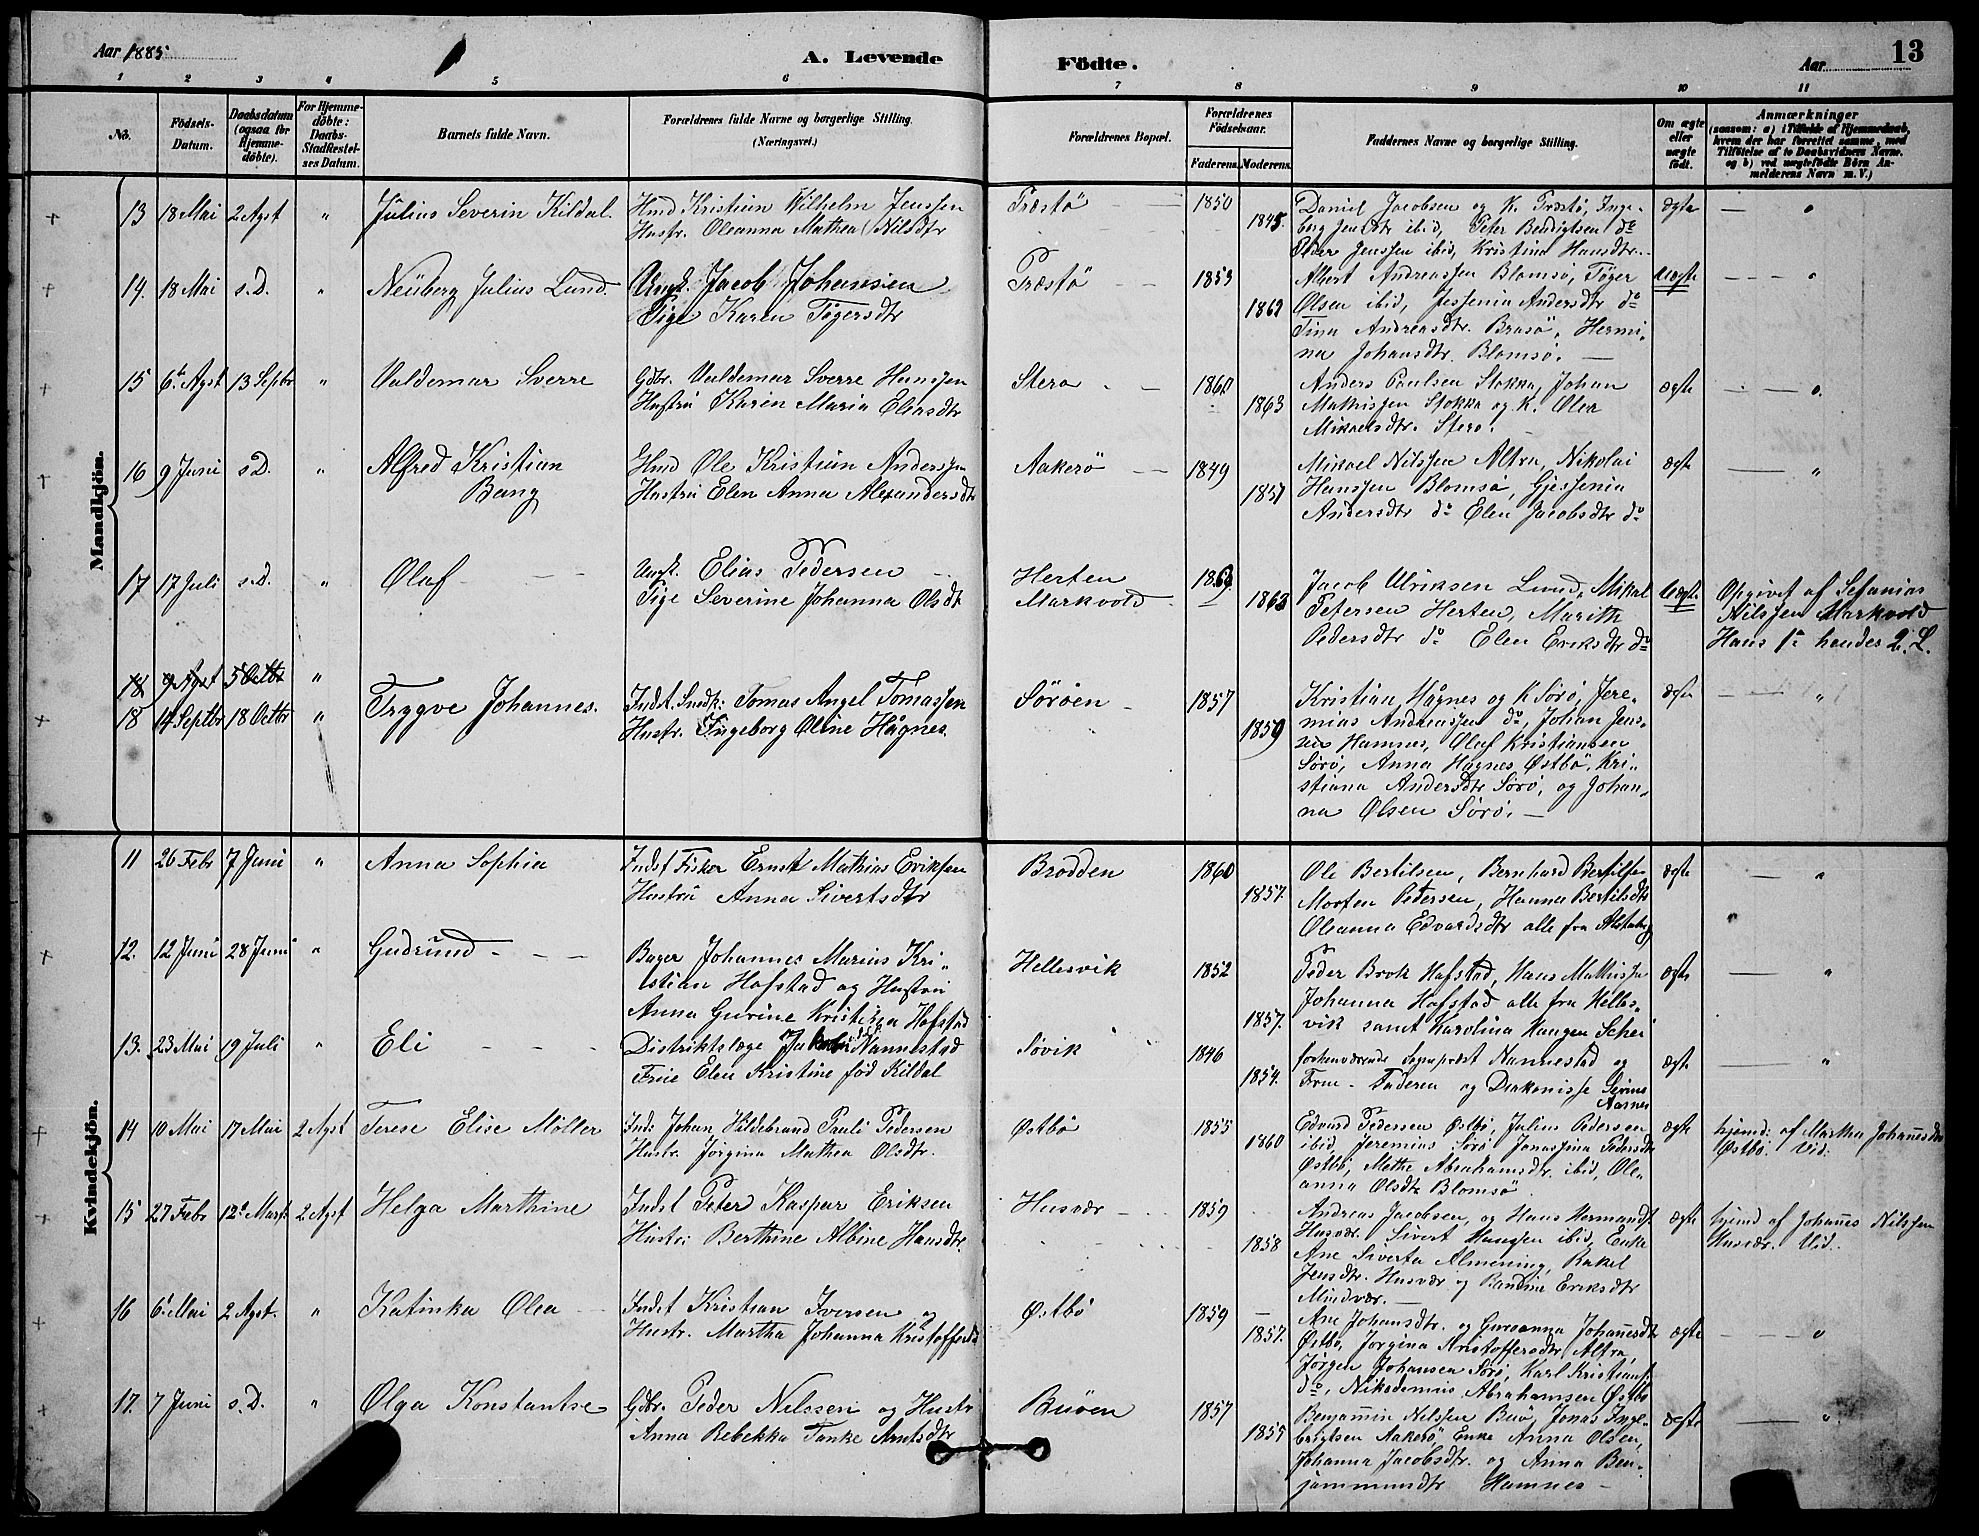 Aar 1885
A. Levende
Födte.
Aar
13
1 2 3 4 5 6 7 8 9 10 11
No.
Födsels-Datum.
Daabsdatum (ogsaa for Hjemme-döbte).
For Hjemme-döbte: Daabs-Stadfæstelses Datum.
Barnets fulde Navn.
Forældrenes fulde Navne og borgerlige Stilling. (Næringsvei.)
Forældrenes Bopæl.
Forældrenes Födselsaar.
Faderens. Moderens.
Faddernes Navne og borgerlige Stilling.
Om ægte eller uægte födt.
Anmærkninger
(saasom: a) i Tilfælde af Hjemmedaab, hvem der har forrettet samme, med Tilföielse af to Daabsvidners Navne, og b) ved uægtefödte Börn Anmelderens Navn m. V.)
Mandkjön.
13 18 Mai 2 Agst " Julius Severin Kildal. Hmd Kristian Wilhelm Jenssen
Hustr. Oleanna Mathea Nilsdtr
Præstö 1850 1845. Daniel Jacobsen og K. Præstö, Inge-
berg Jensdtr ibid, Peter Bendigtsen do
Peder Jenssen ibid, Kristina Hansdtr.
ægte
14. 18 Mai s.D. " Neüberg Julius Lund. Ungk. Jacob Johansen
Pige Karen Tögersdtr
Præstö 1853 1862 Albert Andreassen Blomsö, Töger
Olsen ibid, Jessenia Andersdtr do
Tina Andreasdtr. Brasö, Hermi-
na Johansdtr. Blomsö.
Uægte
15 6te Agst 13 Septbr " Valdemar Sverre Gdbr. Valdemar Sverre Hanssen
Hustrü Karen Maria Eliasdtr
Stero 1860 1863 Anders Paulsen Stokka, Johan
Mathissen Stokka og K. Olea
Mikaelsdtr. Stero.
ægte
16 9 Juni s.D. " Alfred Kristian
Bang
Hmd Ole Kristian Anderssen
Hustrü Elen Anna Alexandersdtr
Aakerö 1849 1857 Mikael Nilssen Altra, Nikolai
Hanssen Blomsö, Gjessenia
Andersdtr do Elen Jacobsdtr do
ægte
17 17 Juli s.D. " Olaf Ungk. Elias Pedersen
Pige Severine Johanna Olsdtr
Herten
Markvold
1863 Jacob Ulriksen Lund, Mikal
Petersen Herten, Marith
Pedersdtr do Elen Eriksdtr do
Uægte
Opgivet af Sefanias
Nilssen Markvold
Hans 1ste hendes 2. L.
18 9 Agst 5 Octbr "
18 14 Septbr 18 Octbr " Trygve Johannes. Indst. Snedk: Tomas Angel Tomassen
Hustr. Ingeborg Oline Hågnes.
Söröen 1857 1859 Kristian Hågnes og K Sörö, Jere-
mias Andreassen do, Johan Jens-
sen Hamnes, Olaf Kristiansen
Sörö, Anna Hågnes Østbö, Kri-
stiana Andersdtr Sörö, og Johan-
na Olsen Sörö.
ægte
Kvindekjön.
11 26 Febr 7 Juni " Anna Sophia Indst Fisker Ernst Mathias Eriksen
Hustrü Anna Sivertsdtr
Brodden 1860 1857. Ole Bertilsen, Bernhard Bertilsen
Morten Pedersen, Hanna Bertilsdtr
Oleanna Edvardsdtr alle fra Alstahog
ægte
12. 12 Juni 28 Juni " Gudründ Bager Johannes Marius Kri-
stian Hafstad og Hustrü
Anna Gurine Kristina Hafstad
Hellesvik 1852 1857. Peder Brok Hafstad, Hans Mathissen
Johanna Hafstad alle fra Helles-
vik samt Karolina Haugen Schei
ægte
13. 23 Mai 19 Juli " Eli Distriktslæge Nannestad
Frue Elen Kristine föd Kildal
Sövik 1846 1854. forhenværende Sogneprest Nannestad og
Frue. Faderen og Diakonisse Sevrine
Aarnes
ægte
14 10 Mai 17 Mai 2 Agst Terese Elise Möller Ind: Johan Hildebrand Pauli Pedersen
Hustr. Jörgina Mathea Olsdtr.
Østbö 1855 1860 Edvard Pedersen Østbö, Julius Pedersen
ibid, Jeremias Sörö Jonassina Pedersdtr
Østbö, Methe Abrahamsdtr. ibid, Ole-
anna Olsdtr Blomsö
ægte
hjemd: af Martha Johannesdtr
Østbö. Vid.
15 27 Febr 12te Marts 2 Agst Helga Marthine Indst Peter Kaspar Eriksen
Hustr: Berthine Albine Hansdtr.
Husvær 1859 1858 Andreas Jacobsen, og Hans Hermands
Husvær. Sivert Hanssen ibid, Enke
Ane Siverta Almening, Rakel
Jensdtr. Husvær og Randine Eriksdtr
Mindvær.
ægte
hjemd af Johannes Nilssen
Husvær. Vid.
16 6te Mai 2 Agst. " Katinka Olea Indst Kristian Iversen og
Hustr. Martha Johanna Kristoffersd
Østbö 1859 1857. Ane Johansdtr. og Guroanna Johannesdtr
Østbö, Jorgina Kristoffersdtr Altra,
Jörgen Johansen Sörö, Karl Kristians
do, Nikodemus Abrahamsen Østbö
ægte
17. 7 Juni s.D. " Olga Konstantse Gdbr. Peder Nilssen og Hustr
Anna Rebekka Tanke Arntsdtr
Buöen 1857 1855 Benjamin Nilssen Buö, Jonas Inge-
brigtsen Aakerö Enke Anna Olsen,
Johanna Jacobsdtr. og Anna Ben-
jaminsdtr Hamnes
ægte